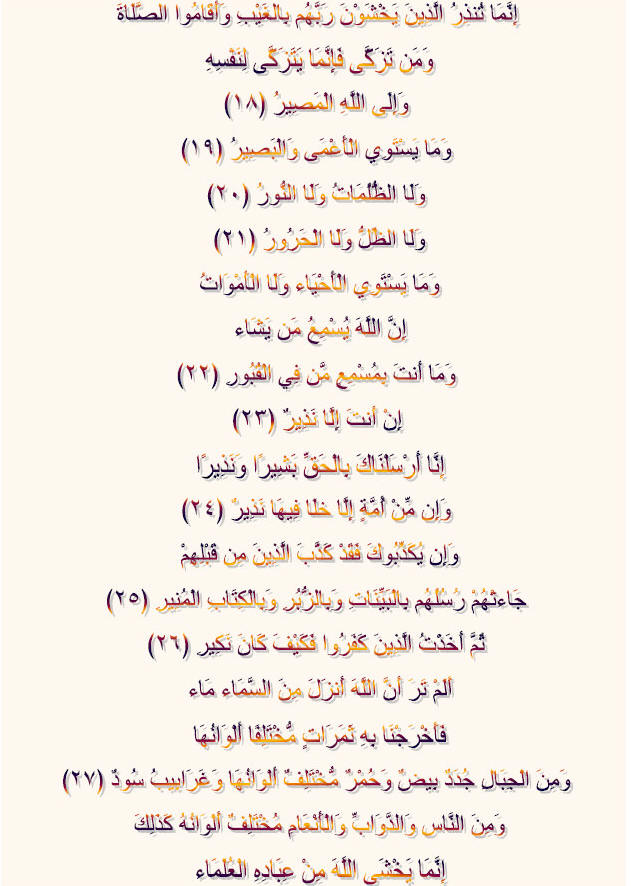 إِنَّمَا تُنذِرُ الَّذِينَ يَخْشَوْنَ رَبَّهُم بِالغَيْبِ وَأَقَامُوا الصَّلَاةَ
وَمَن تَزَكَّى فَإِنَّمَا يَتَزَكَّى لِنَفْسِهِ
وَإِلَى اللَّهِ الْمَصِيرُ (١٨)
وَمَا يَسْتَوِي الْأَعْمَى وَالْبَصِيرُ (١٩)
وَلَا الظُّلُمَاتُ وَلَا النُّورُ (٢٠)
وَلَا الظِّلُّ وَلَا الْحَرُورُ (٢١)
وَمَا يَسْتَوِي الْأَحْيَاء وَلَا الْأَمْوَاتُ
إِنَّ اللَّهَ يُسْمِعُ مَن يَشَاء
وَمَا أَنتَ بِمُسْمِعٍ مَّن فِي الْقُبُورِ (٢٢)
إِنْ أَنتَ إِلَّا نَذِيرٌ (٢٣)
إِنَّا أَرْسَلْنَاكَ بِالْحَقِّ بَشِيرًا وَنَذِيرًا
وَإِن مِّنْ أُمَّةٍ إِلَّا خلَا فِيهَا نَذِيرٌ (٢٤)
وَإِن يُكَذِّبُوكَ فَقَدْ كَذَّبَ الَّذِينَ مِن قَبْلِهِمْ
جَاءتْهُمْ رُسُلُهُم بِالْبَيِّنَاتِ وَبِالزُّبُرِ وَبِالْكِتَابِ الْمُنِيرِ (٢٥)
ثُمَّ أَخَذْتُ الَّذِينَ كَفَرُوا فَكَيْفَ كَانَ نَكِيرِ (٢٦)
أَلَمْ تَرَ أَنَّ اللَّهَ أَنزَلَ مِنَ السَّمَاء مَاء
فَأَخْرَجْنَا بِهِ ثَمَرَاتٍ مُّخْتَلِفًا أَلْوَانُهَا
وَمِنَ الْجِبَالِ جُدَدٌ بِيضٌ وَحُمْرٌ مُّخْتَلِفٌ أَلْوَانُهَا وَغَرَابِيبُ سُودٌ (٢٧)
وَمِنَ النَّاسِ وَالدَّوَابِّ وَالْأَنْعَامِ مُخْتَلِفٌ أَلْوَانُهُ كَذَلِكَ
إِنَّمَا يَخْشَى اللَّهَ مِنْ عِبَادِهِ الْعُلَمَاء